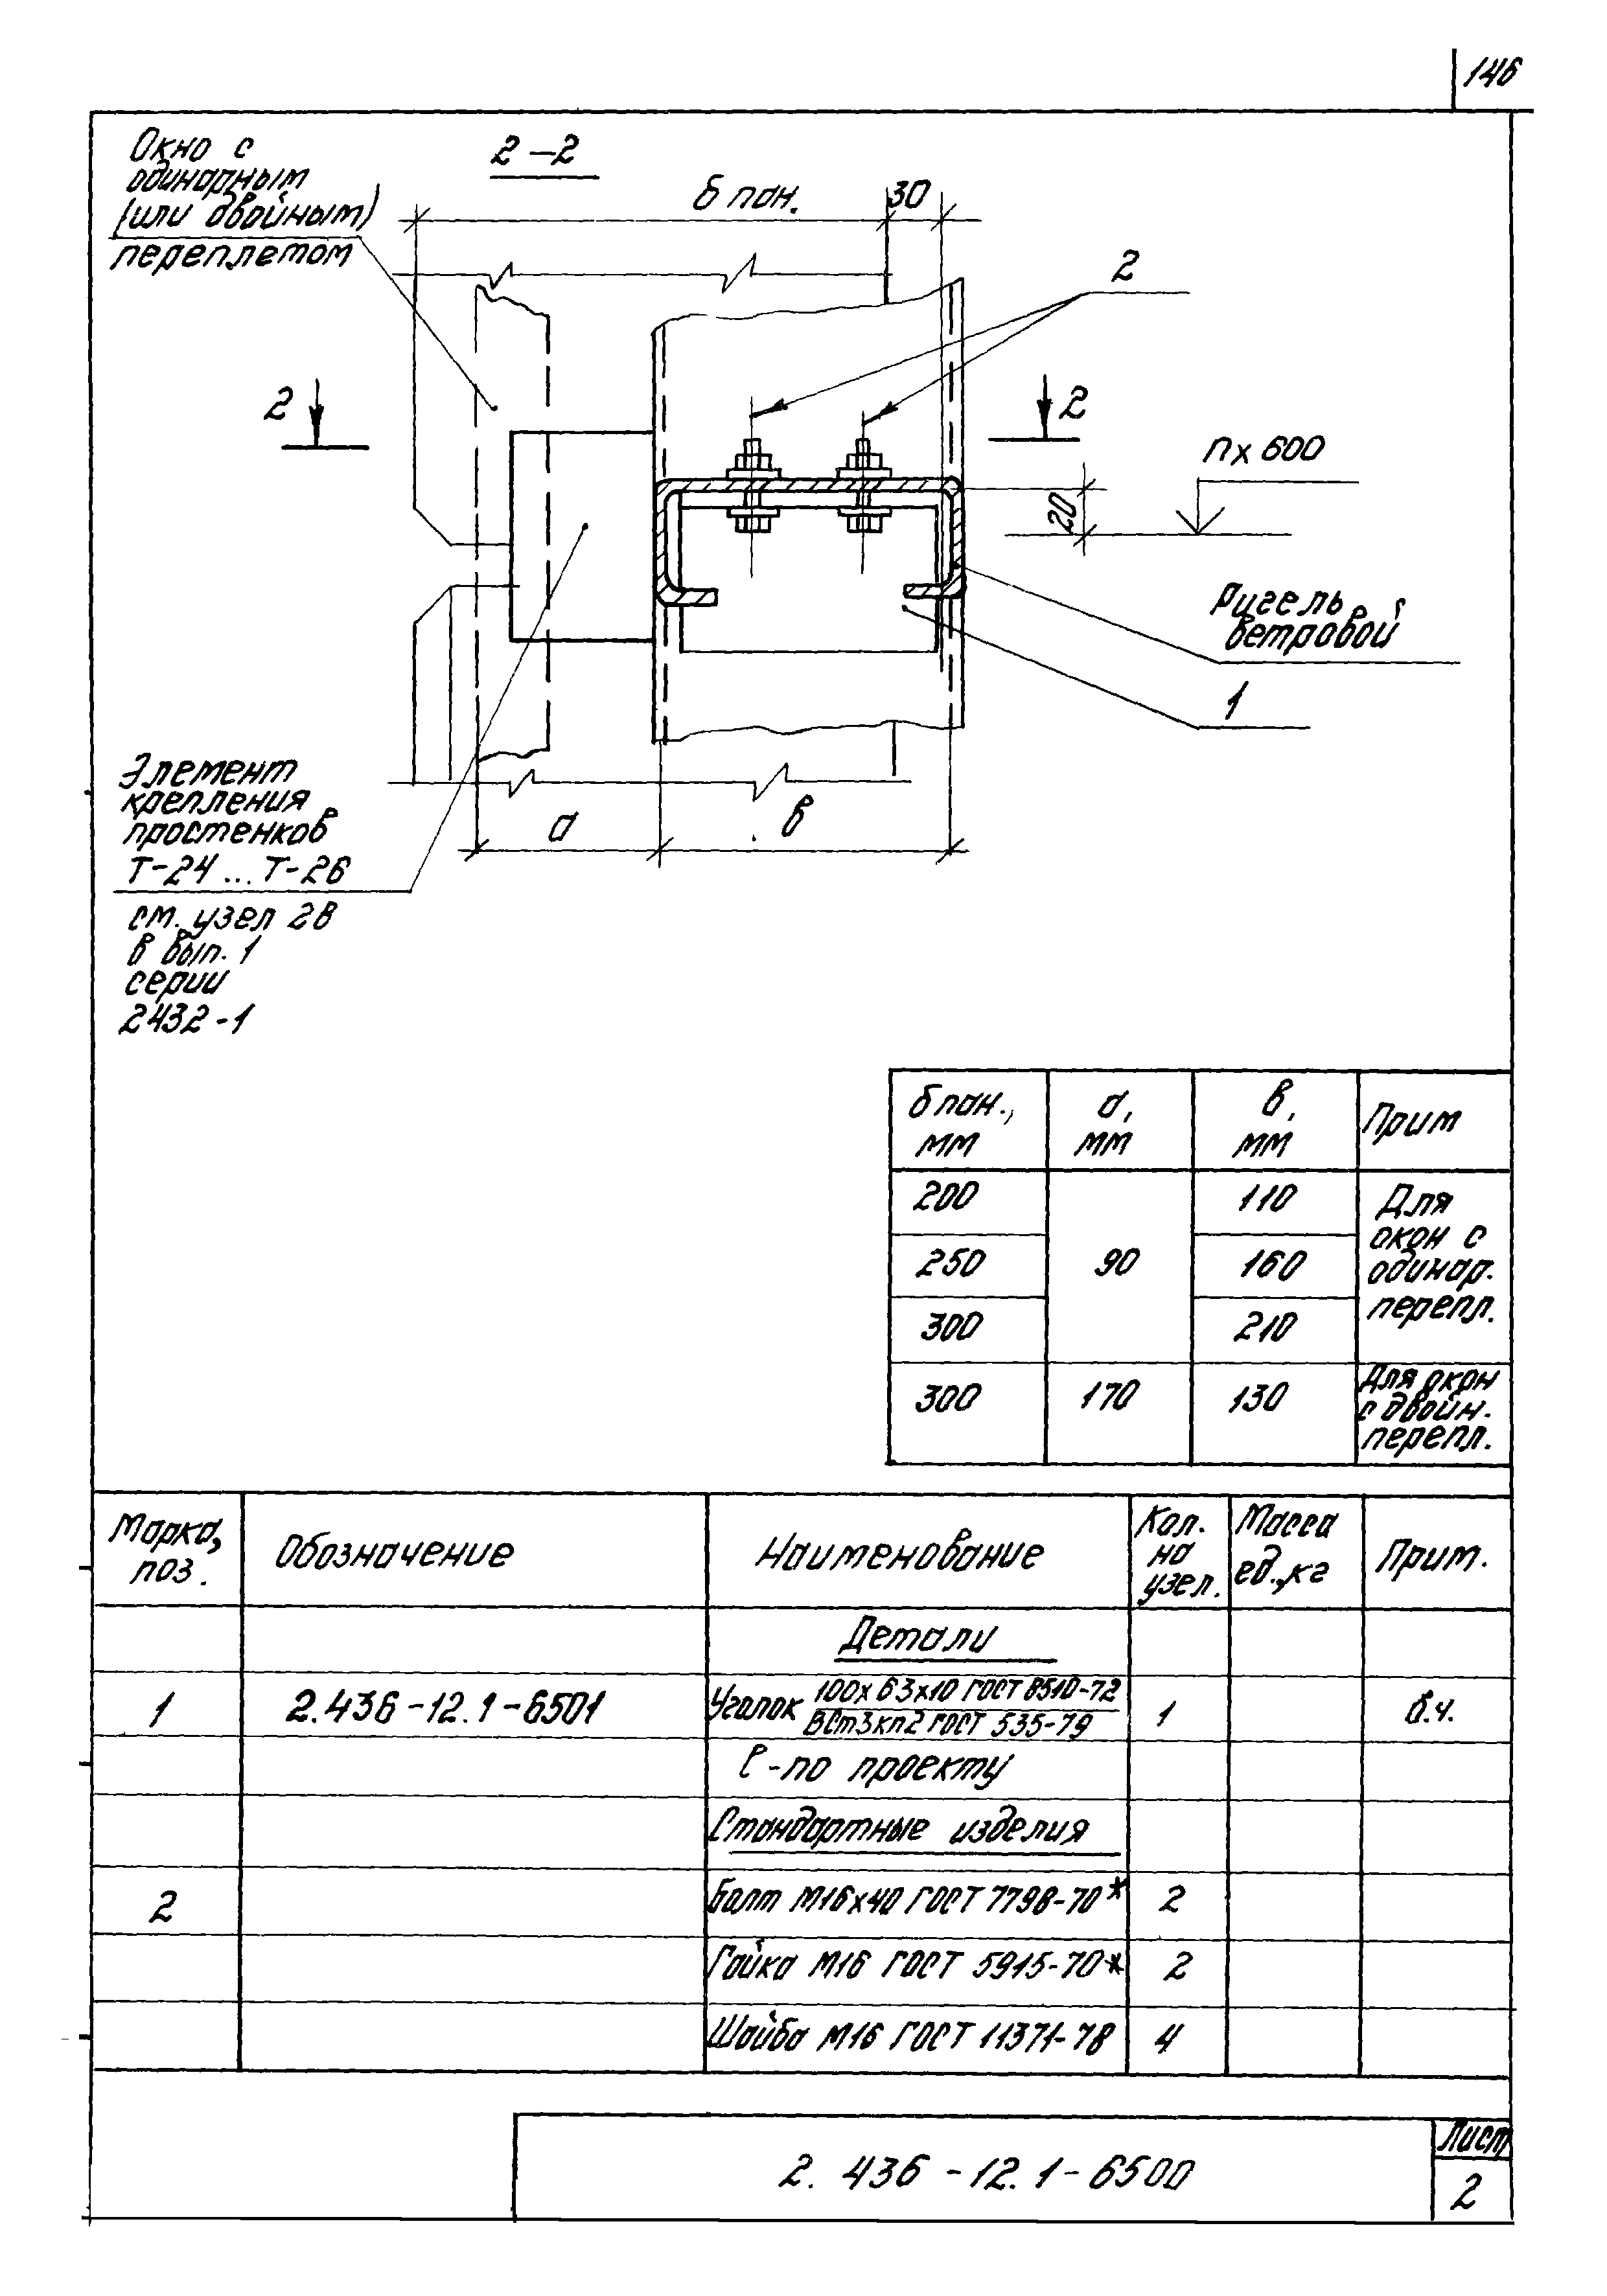 146
Окно с
одинарным
(или двойным)
переплетом
2-2
δ пан.
30
2
2
2
n x 600
20
Ригель
ветровой
1
Элемент
крепления
простенков
Т-24 ... Т-26
см. узел 28
в вып. 1
серии
2432-1
а
в
δ пан., мм
а, мм
в, мм
Прим
200
90
110
Для
окон с
одинар.
перепл.
250
160
300
210
300
170
130
Для окон
с двойн.
перепл.
Марка, поз.
Обозначение
Наименование
Кол. на узел.
Масса ед., кг
Прим.
Детали
1
2.436-12.1-6501
Уголок 100х63х10 ГОСТ 8510-72
ВСт3кп2 ГОСТ 535-79
1
б.ч.
ℓ-по проекту
Стандартные изделия
2
Болт М16х40 ГОСТ 7798-70*
2
Гайка М16 ГОСТ 5915-70*
2
Шайба М16 ГОСТ 11371-78
4
2.436-12.1-6500
Лист
2